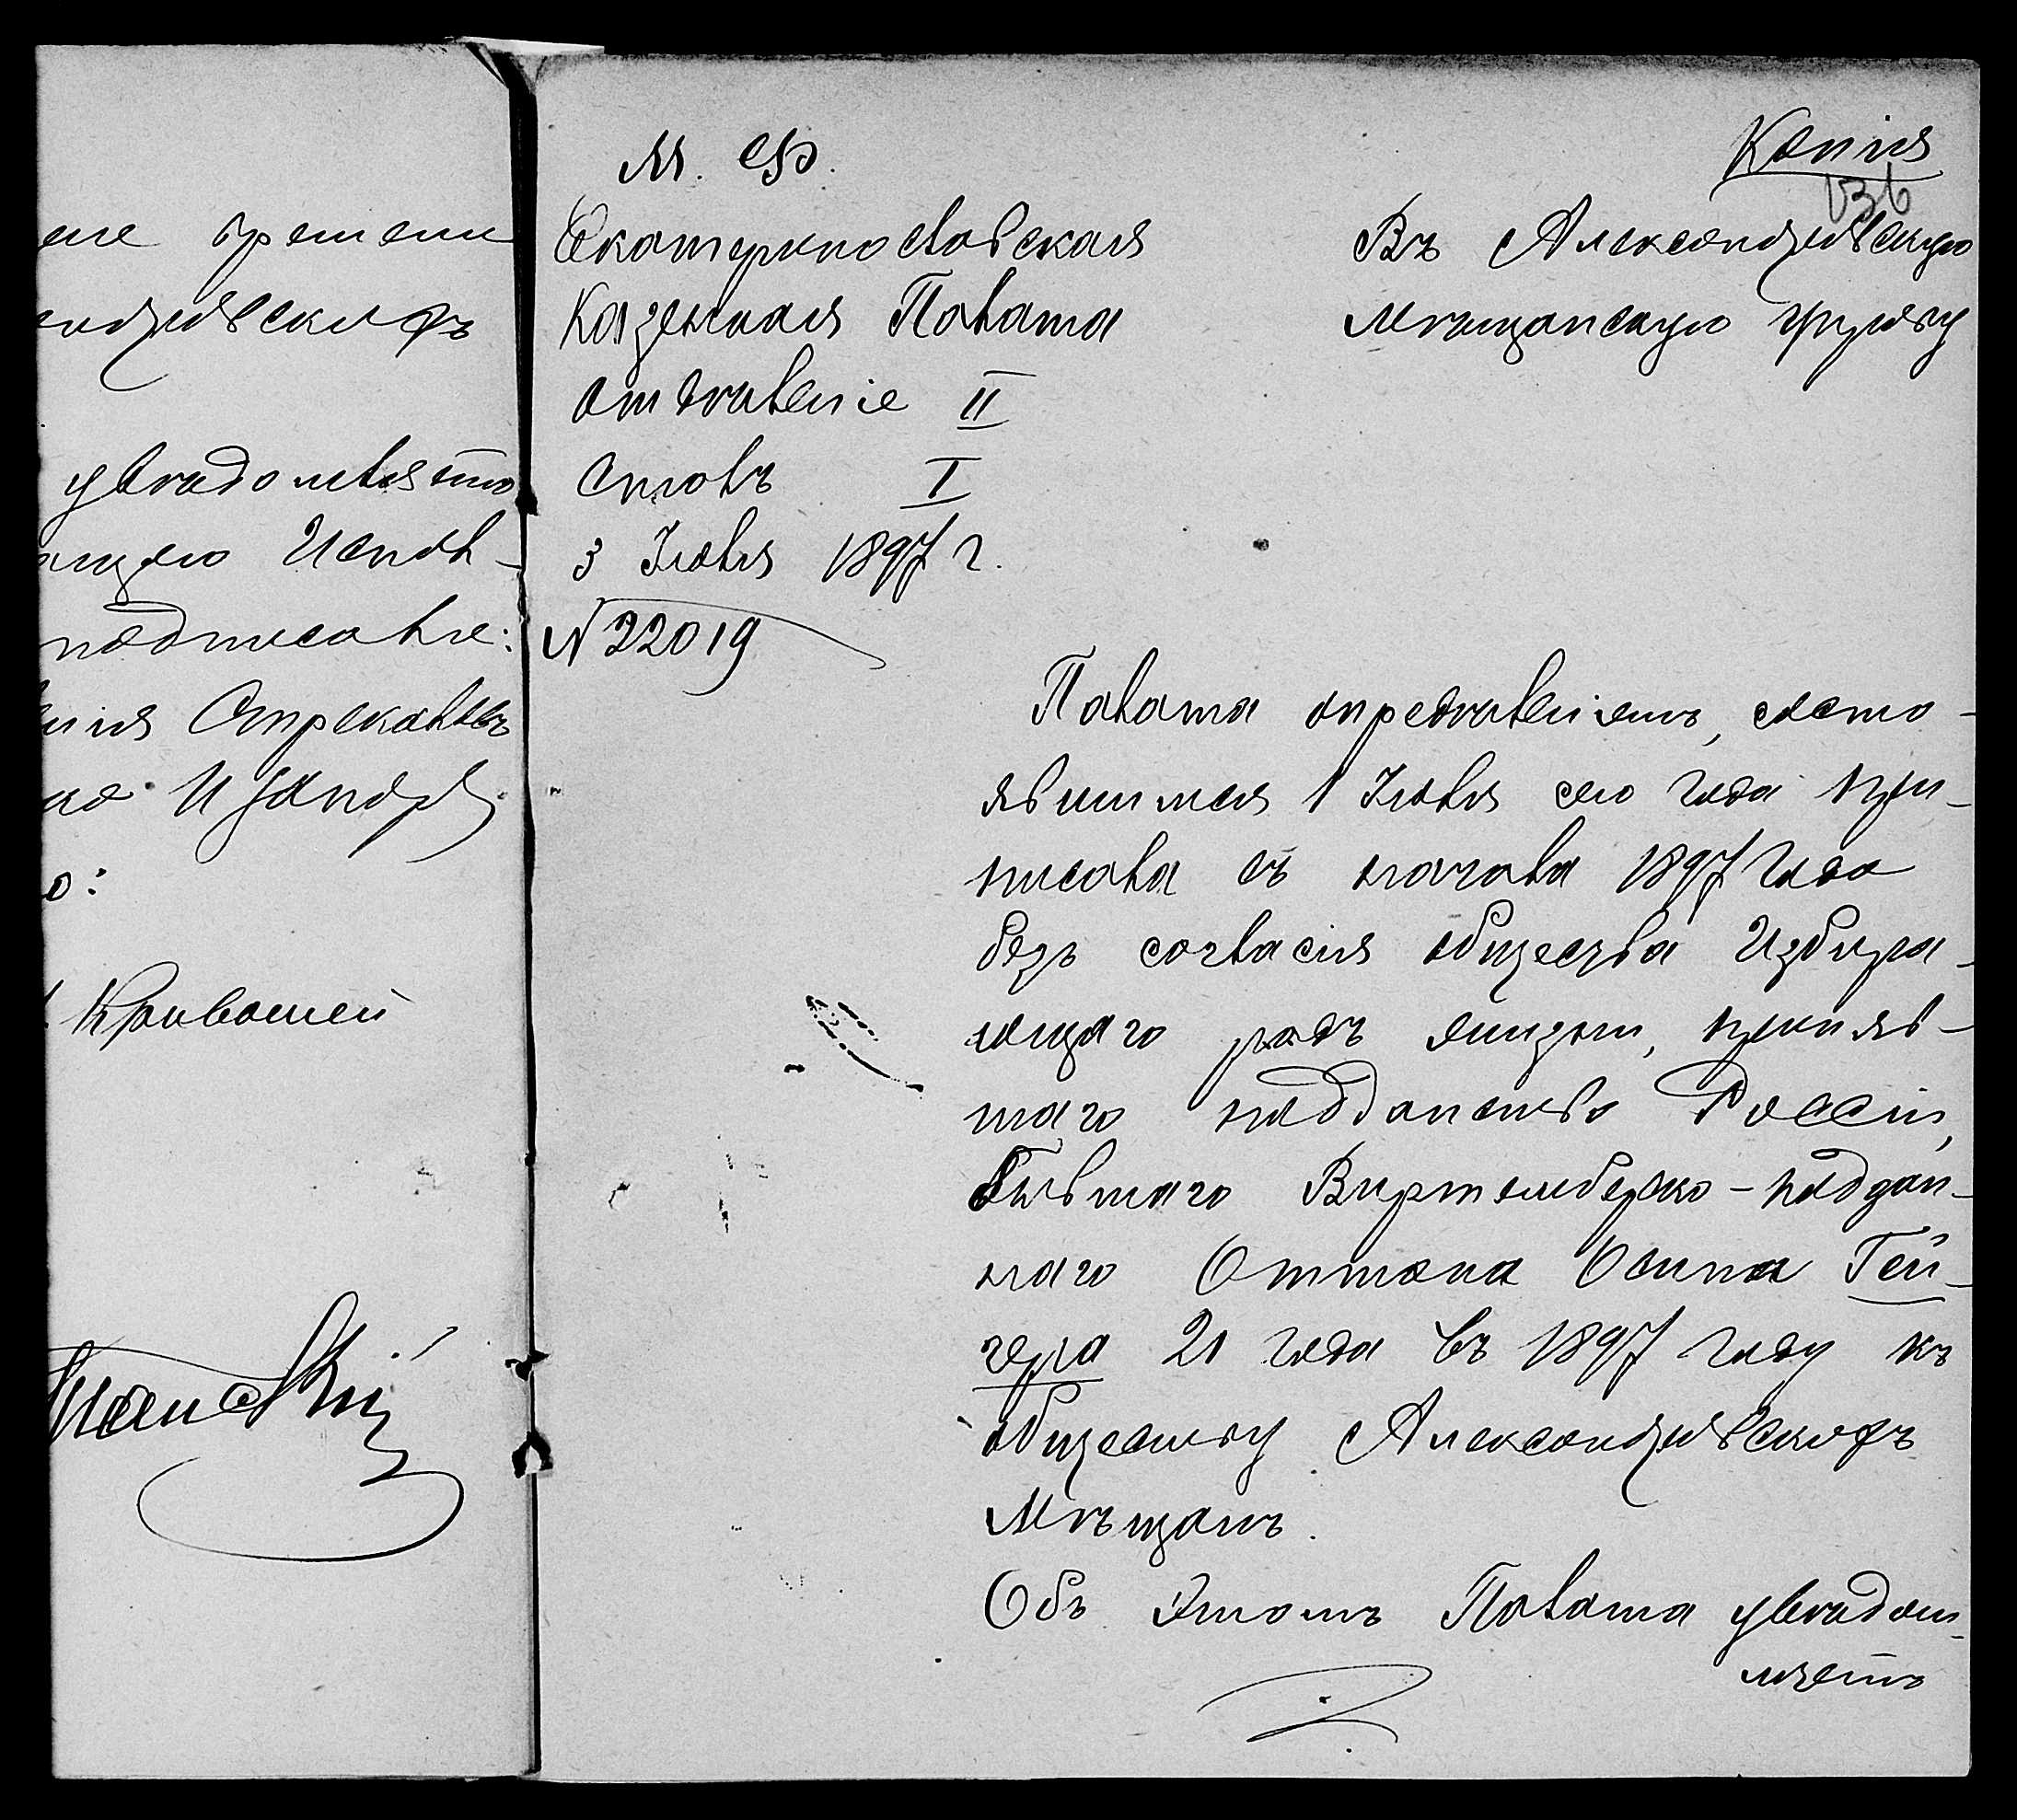 ее времени
ндровскихъ
увѣдомляетъ
ащаго Испол-
подписалъ:
нія Стрекаловъ
о:
Кривошей
Копія
136
М. Ф.
Екатеринославская
Казенная Палата
отдѣленіе II
столъ I
3 Іюля 1897 г.
№ 22019
Въ Александровскую
Мѣщанскую управу
Палата опредѣленіемъ, состо-
явшимся 1 Іюля сего года при-
писала съ начала 1897 года
безъ согласія общества Избира-
ющаго родъ жизни, приняв-
шаго подданство Россіи,
бывшаго Виртембергско-поддан-
наго Оттона Осипа Гей-
гера 21 года въ 1897 году къ
обществу Александровскихъ
Мѣщанъ.
Объ этомъ Палата увѣдом-
ляетъ